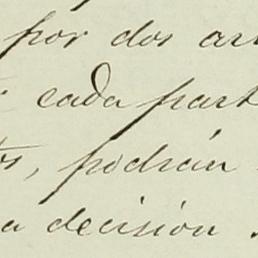 por dos ar
cada part
podrán
a decisión.